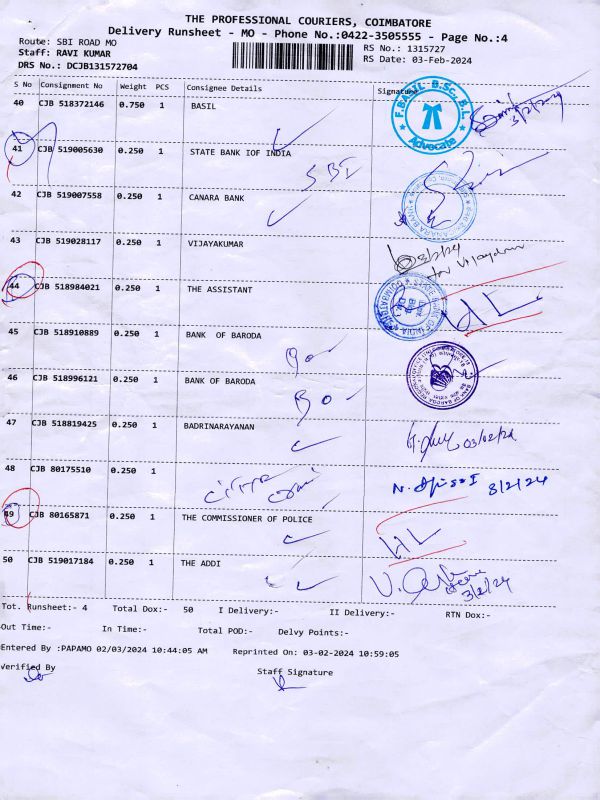 THE PROFESSIONAL COURIERS, COIMBATORE
Delivery Runsheet - MO - Phone No.:0422-3505555 - Page No.:4
Route: SBI ROAD MO
RS No.: 1315727
Staff: RAVI KUMAR
RS Date: 03-Feb-2024
DRS No.: DCJB131572704
S No Consignment No Weight PCS Consignee Details Signature
40 CJB 518372146 0.750 1 BASIL
F.BASIL B.Sc., B.L. Advocate
3/2/2024
41 CJB 519005630 0.250 1 STATE BANK IOF INDIA
SBI
42 CJB 519007558 0.250 1 CANARA BANK
43 CJB 519028117 0.250 1 VIJAYAKUMAR
44 CJB 518984021 0.250 1 THE ASSISTANT
HL
45 CJB 518910889 0.250 1 BANK OF BARODA
46 CJB 518996121 0.250 1 BANK OF BARODA
47 CJB 518819425 0.250 1 BADRINARAYANAN
03/02/24
48 CJB 80175510 0.250 1
8/2/24
49 CJB 80165871 0.250 1 THE COMMISSIONER OF POLICE
HL
50 CJB 519017184 0.250 1 THE ADDI
3/2/24
Tot. Runsheet:- 4 Total Dox:- 50 I Delivery:- II Delivery:- RTN Dox:-
Out Time:- In Time:- Total POD:- Delvy Points:-
Entered By :PAPAMO 02/03/2024 10:44:05 AM Reprinted On: 03-02-2024 10:59:05
Verified By
Staff Signature